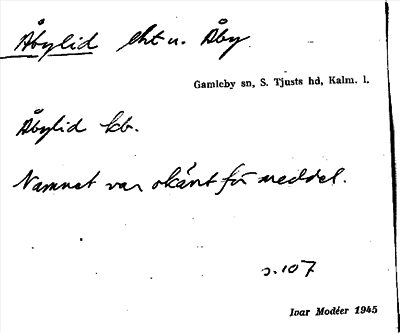 Åbylid lht u. Åby
Gamleby sn, S. Tjusts hd, Kalm. l.
Åbylid kb.
Namnet var okänt för meddel.
s. 107
Ivar Modéer 1945